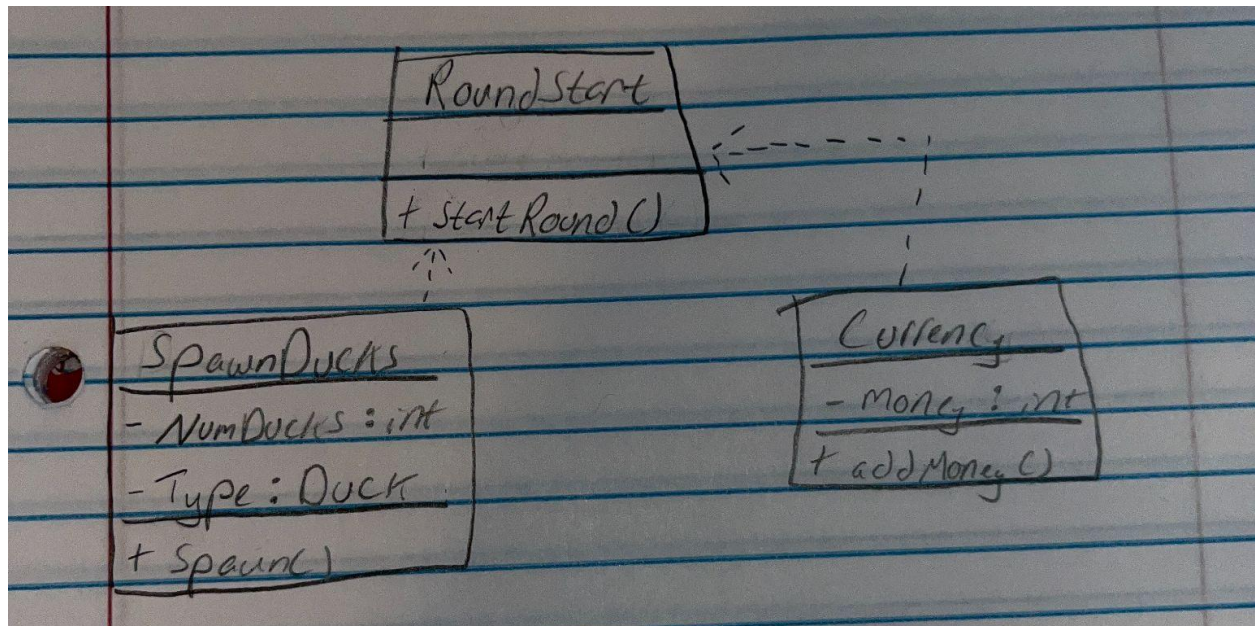 RoundStart
+ startRound()
SpawnDucks
- NumDucks : int
- Type : Duck
+ Spawn()
Currency
- money : int
+ addMoney()